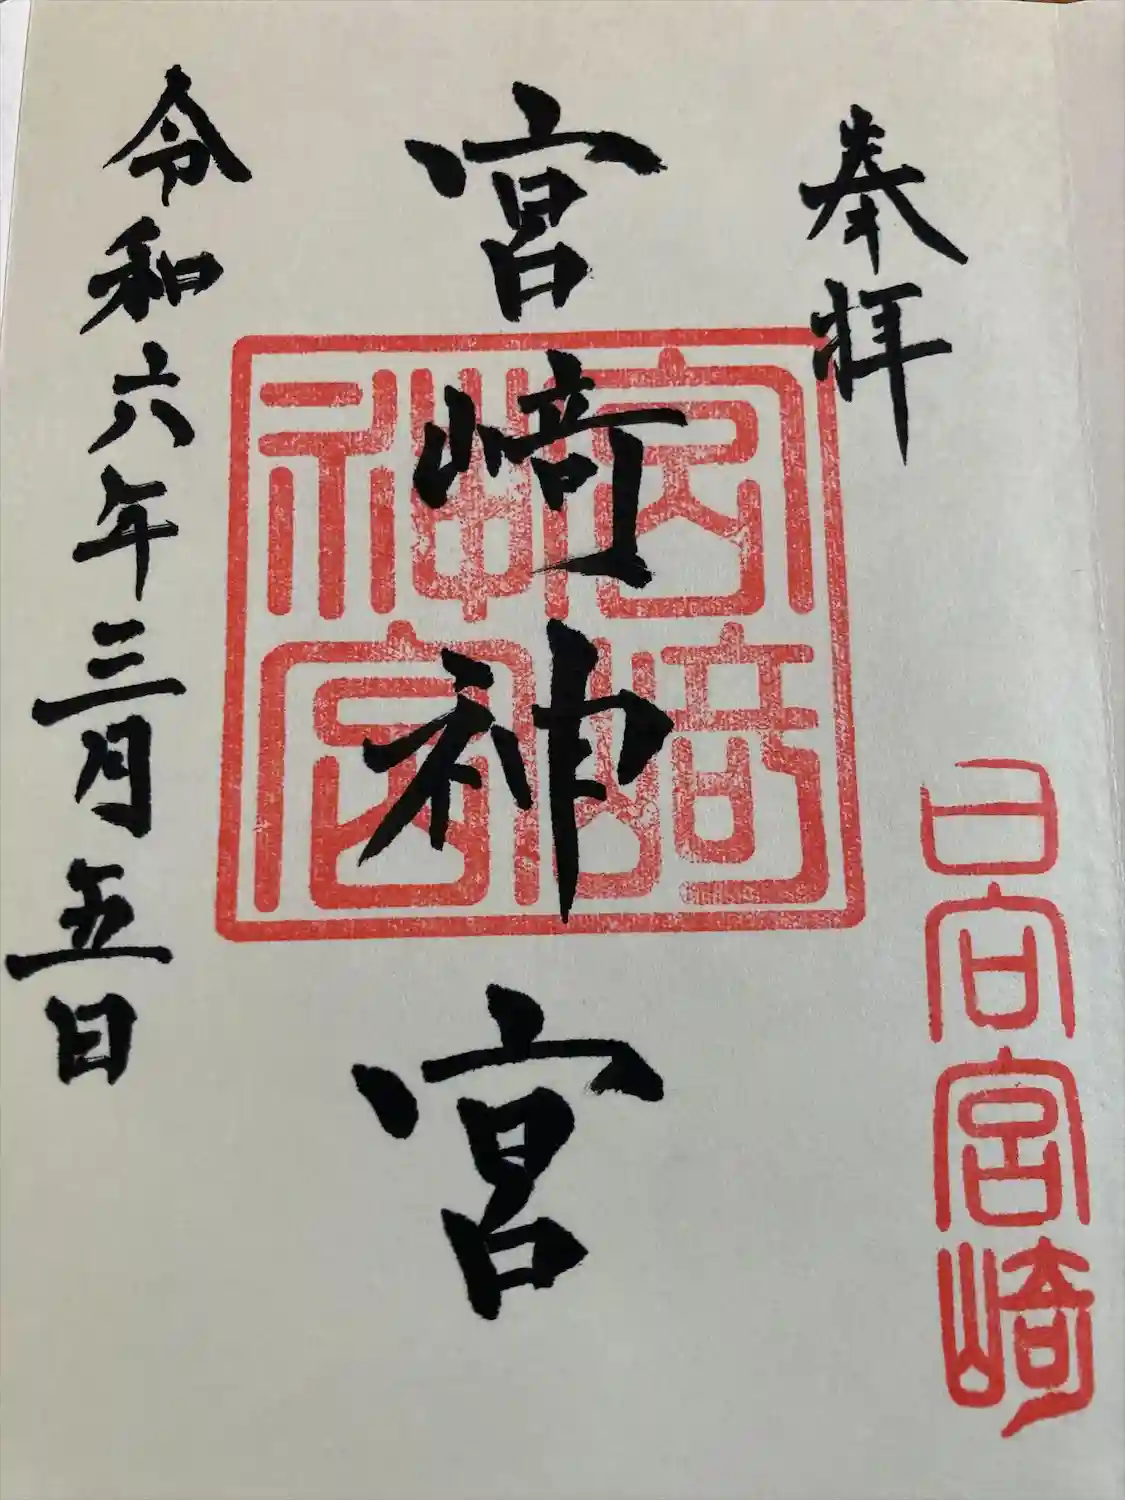 奉拝
日向宮﨑
宮﨑神宮
宮﨑神宮
令和六年三月五日